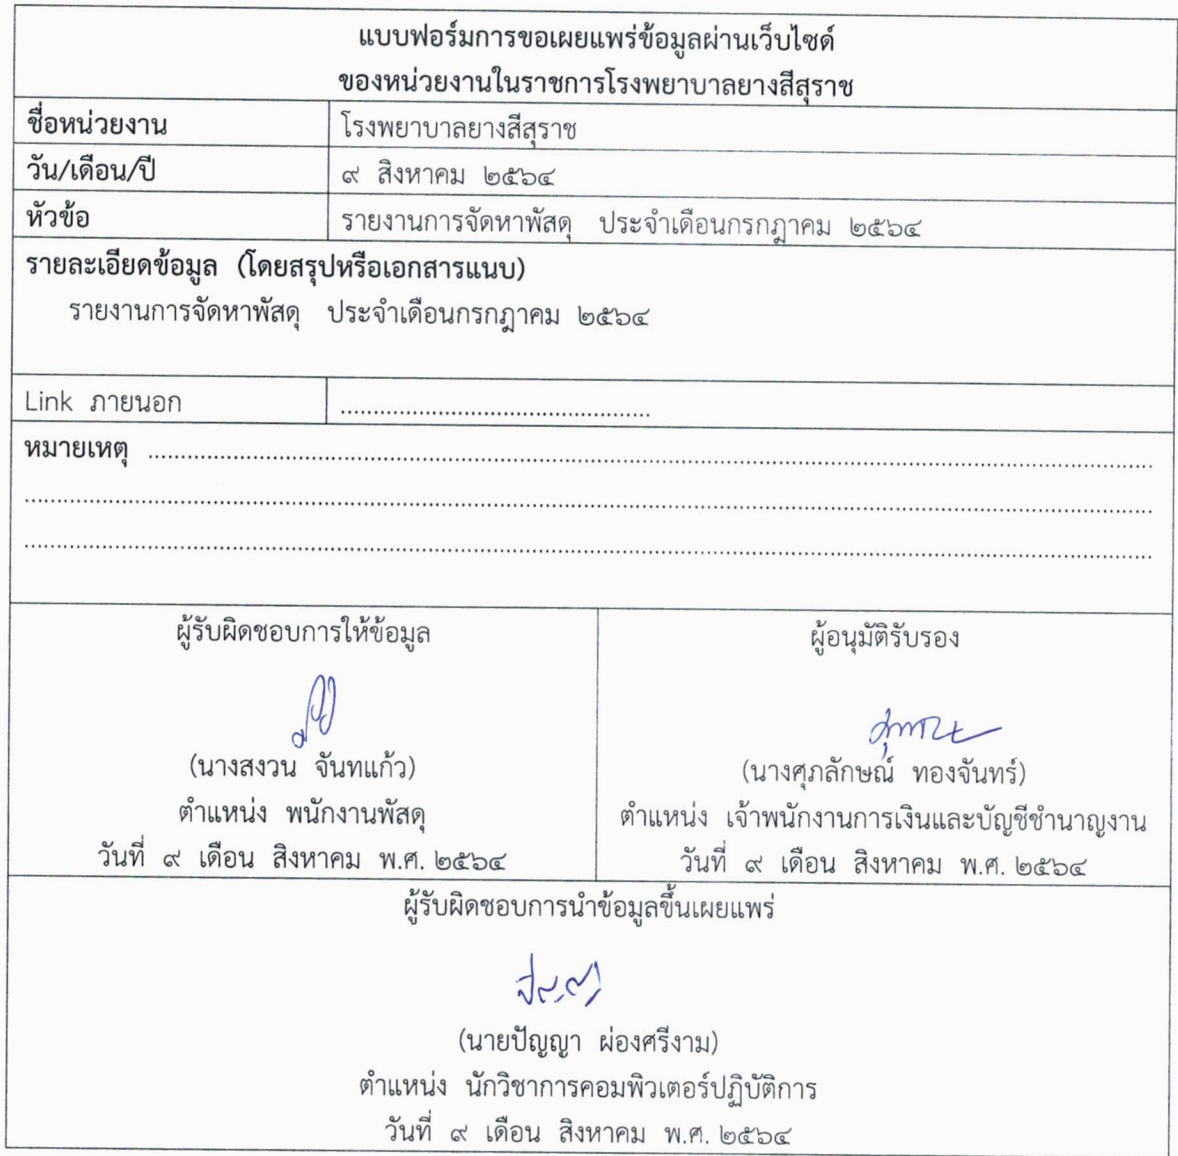 แบบฟอร์มการขอเผยแพร่ข้อมูลผ่านเว็บไซด์
ของหน่วยงานในราชการโรงพยาบาลยางสีสุราช
ชื่อหน่วยงาน โรงพยาบาลยางสีสุราช
วัน/เดือน/ปี ๙ สิงหาคม ๒๕๖๔
หัวข้อ รายงานการจัดหาพัสดุ ประจำเดือนกรกฎาคม ๒๕๖๔
รายละเอียดข้อมูล (โดยสรุปหรือเอกสารแนบ)
รายงานการจัดหาพัสดุ ประจำเดือนกรกฎาคม ๒๕๖๔
Link ภายนอก ................................................
หมายเหตุ ................................................
................................................
................................................
ผู้รับผิดชอบการให้ข้อมูล
(นางสงวน จันทแก้ว)
ตำแหน่ง พนักงานพัสดุ
วันที่ ๙ เดือน สิงหาคม พ.ศ. ๒๕๖๔
ผู้อนุมัติรับรอง
(นางศุภลักษณ์ ทองจันทร์)
ตำแหน่ง เจ้าพนักงานการเงินและบัญชีชำนาญงาน
วันที่ ๙ เดือน สิงหาคม พ.ศ. ๒๕๖๔
ผู้รับผิดชอบการนำข้อมูลขึ้นเผยแพร่
(นายปัญญา ผ่องศรีงาม)
ตำแหน่ง นักวิชาการคอมพิวเตอร์ปฏิบัติการ
วันที่ ๙ เดือน สิงหาคม พ.ศ. ๒๕๖๔